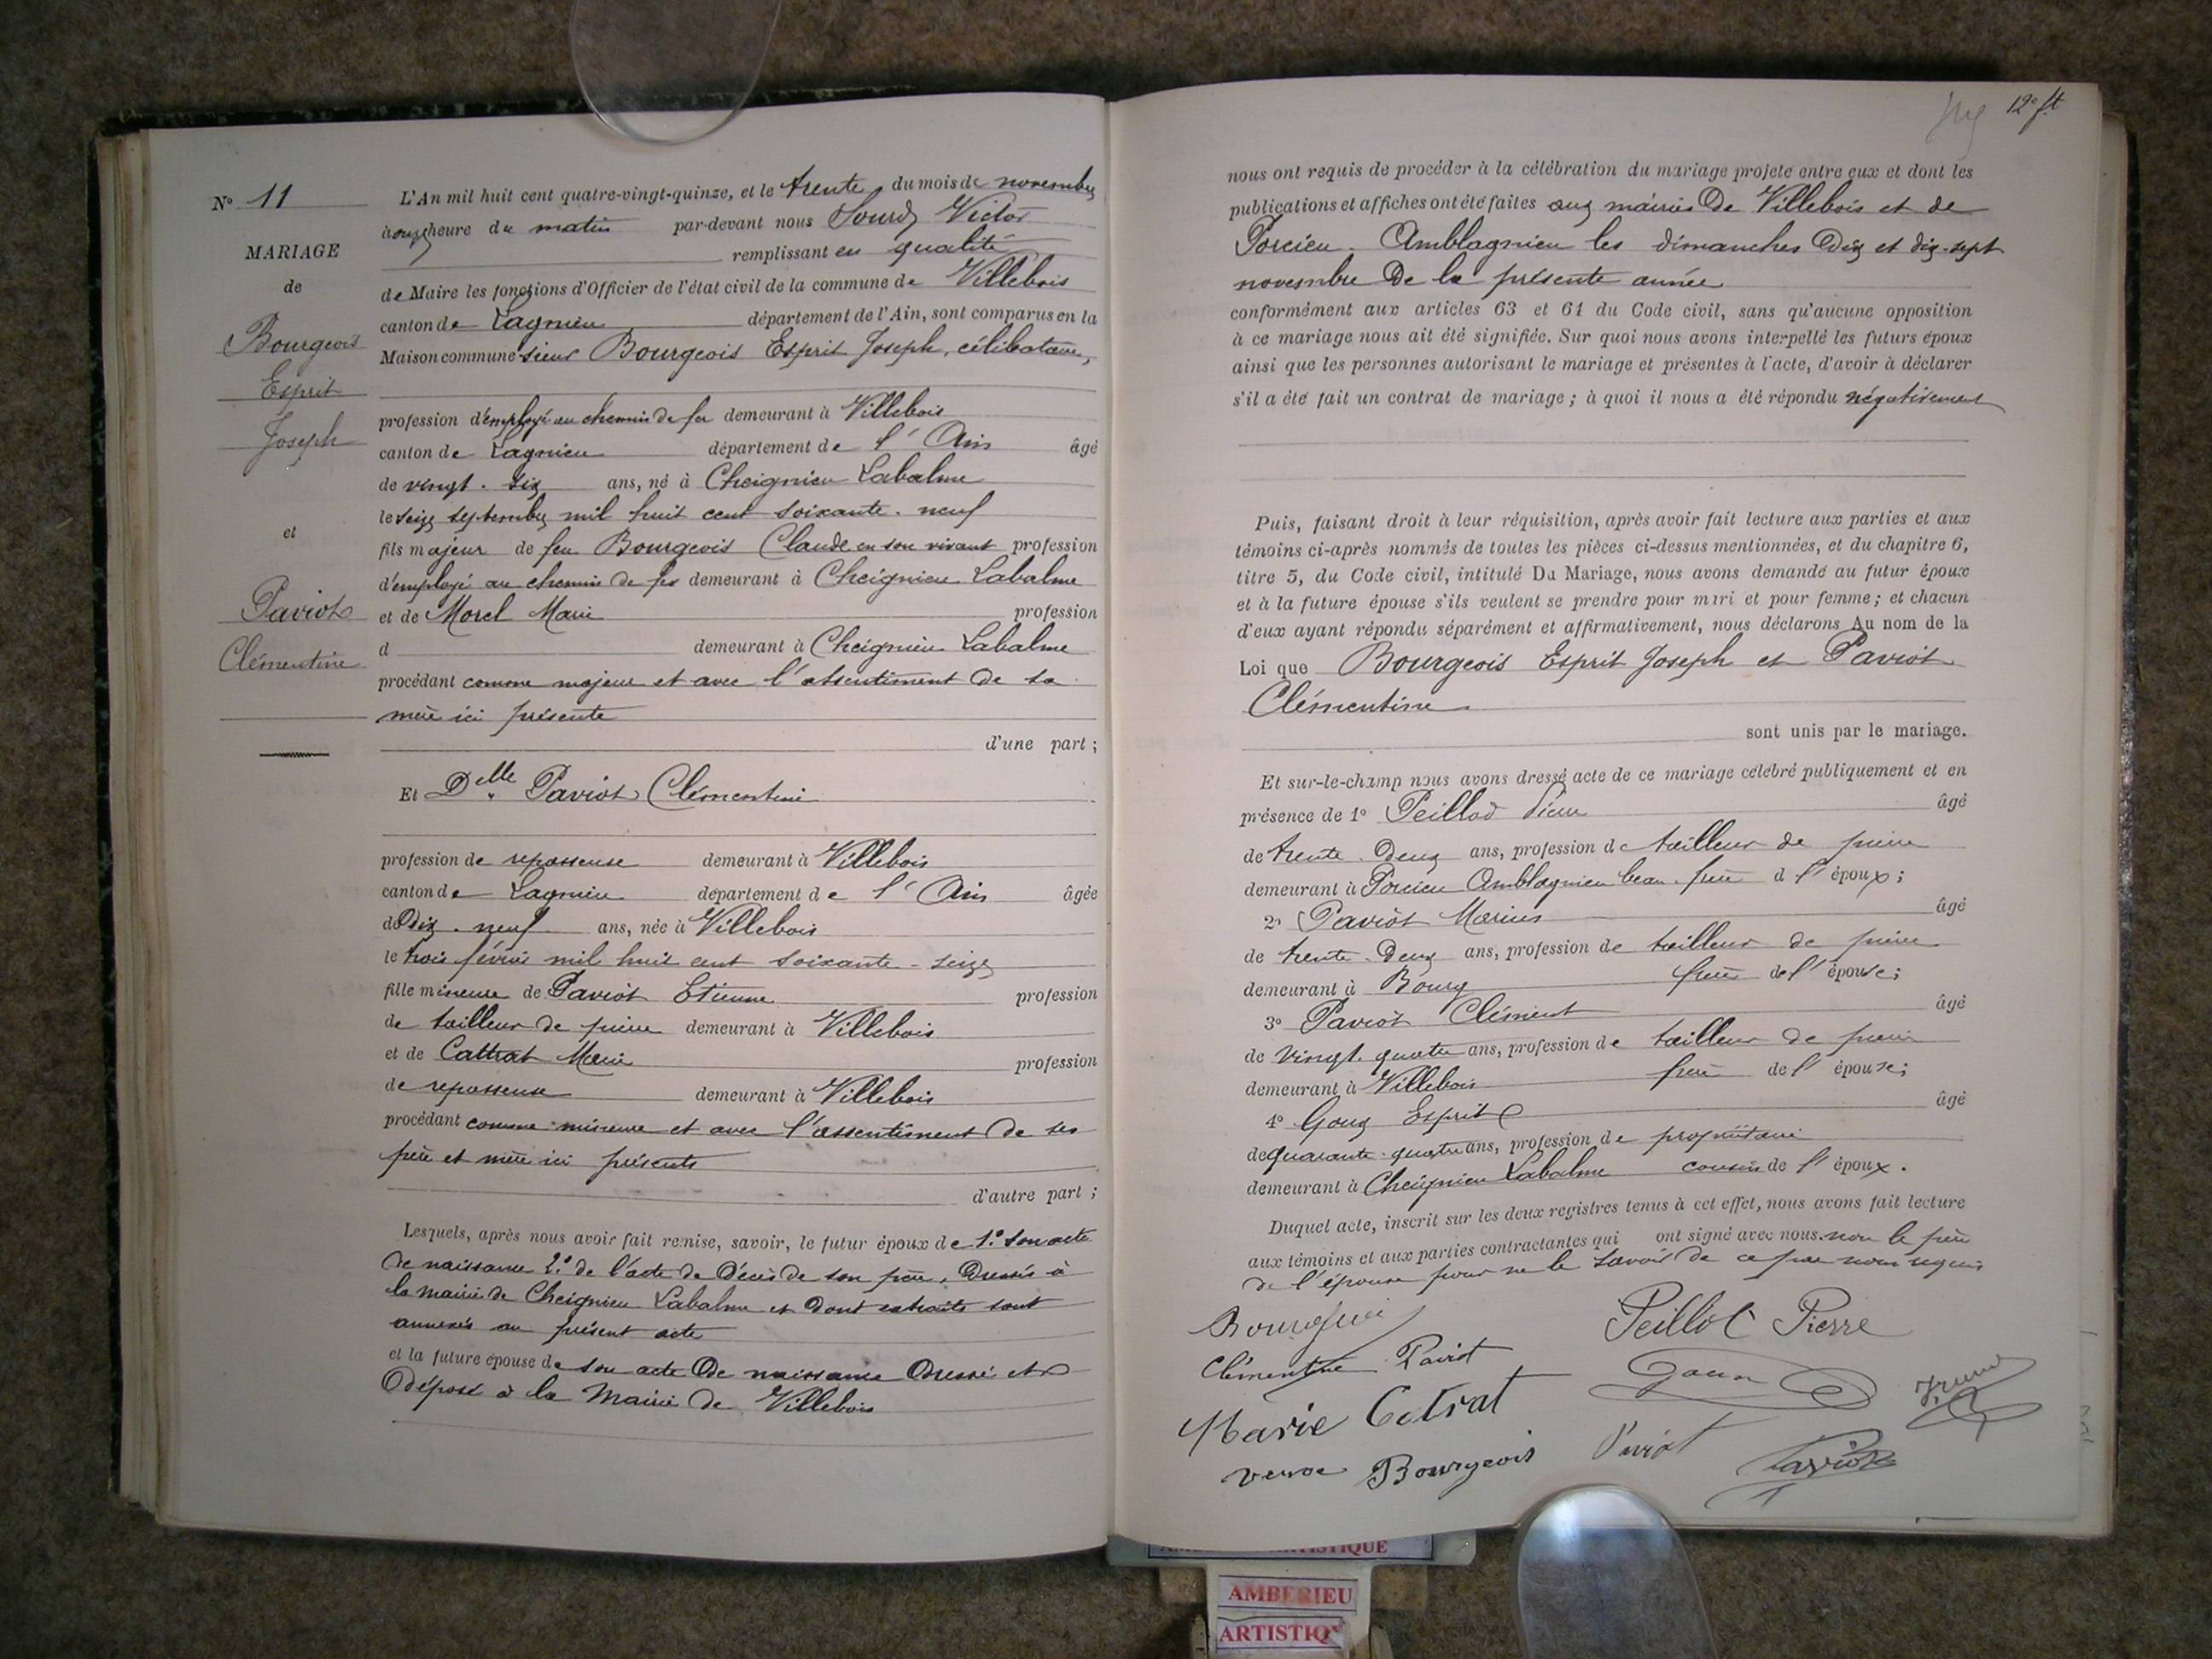 N° 11
MARIAGE
de
Bourgeois
Esprit
Joseph
et
Paviot
Clémentine
L'An mil huit cent quatre-vingt-quinze, et le trente du mois de novembre
à onze heure du matin par-devant nous Sourd Victor
remplissant en qualité
de Maire les fonctions d'Officier de l'état civil de la commune de Villebois
canton de Lagnieu département de l'Ain, sont comparus en la
Maison commune sieur Bourgeois Esprit Joseph, célibataire,
profession d'employé au chemin de fer demeurant à Villebois
canton de Lagnieu département de l'Ain âgé
de vingt-six ans, né à Cheignieu Labalme
le seize septembre mil huit cent soixante-neuf
fils majeur de feu Bourgeois Claude en son vivant profession
d'employé au chemin de fer demeurant à Cheignieu Labalme
et de Morel Marie profession
d demeurant à Cheignieu Labalme
procédant comme majeur et avec l'assentiment de sa
mère ici présente
d'une part ;
Et Delle Paviot Clémentine
profession de repasseuse demeurant à Villebois
canton de Lagnieu département de l'Ain âgée
de Dix-neuf ans, née à Villebois
le trois février mil huit cent soixante-seize
fille mineure de Paviot Etienne profession
de tailleur de pierre demeurant à Villebois
et de Cattrat Marie profession
de repasseuse demeurant à Villebois
procédant comme mineure et avec l'assentiment de ses
père et mère ici présents
d'autre part ;
Lesquels, après nous avoir fait remise, savoir, le futur époux de 1.° son acte
de naissance 2.° de l'acte de Décès de son père, Dressés à
la mairie de Cheignieu Labalme et dont extraits sont
annexés au présent acte
et la future épouse de son acte De naissance Dressé et
Déposé à la Mairie de Villebois
12e ft
nous ont requis de procéder à la célébration du mariage projeté entre eux et dont les
publications et affiches ont été faites aux mairies De Villebois et de
Porcieu-Amblagnieu les dimanches Dix et dix-sept
novembre De la présente année
conformément aux articles 63 et 64 du Code civil, sans qu'aucune opposition
à ce mariage nous ait été signifiée. Sur quoi nous avons interpellé les futurs époux
ainsi que les personnes autorisant le mariage et présentes à l'acte, d'avoir à déclarer
s'il a été fait un contrat de mariage ; à quoi il nous a été répondu négativement
Puis, faisant droit à leur réquisition, après avoir fait lecture aux parties et aux
témoins ci-après nommés de toutes les pièces ci-dessus mentionnées, et du chapitre 6,
titre 5, du Code civil, intitulé Du Mariage, nous avons demandé au futur époux
et à la future épouse s'ils veulent se prendre pour mari et pour femme ; et chacun
d'eux ayant répondu séparément et affirmativement, nous déclarons Au nom de la
Loi que Bourgeois Esprit Joseph et Paviot
Clémentine
sont unis par le mariage.
Et sur-le-champ nous avons dressé acte de ce mariage célébré publiquement et en
présence de 1° Peillod Pierre âgé
de trente-Deux ans, profession de tailleur de pierre
demeurant à Porcieu Amblagnieu beau-frère d l'époux ;
2° Paviot Marius âgé
de trente-Deux ans, profession de tailleur de pierre
demeurant à Bourg frère de l'épouse ;
3° Paviot Clément âgé
de vingt-quatre ans, profession de tailleur de pierre
demeurant à Villebois frère de l'épouse ;
4° Goux Esprit âgé
de quarante-quatre ans, profession de propriétaire
demeurant à Cheignieu Labalme cousin de l'époux.
Duquel acte, inscrit sur les deux registres tenus à cet effet, nous avons fait lecture
aux témoins et aux parties contractantes qui ont signé avec nous. non le père
de l'épouse pour ne le savoir de ce par nous requis
Bourgeois Peillot Pierre
Clémentine Paviot
Marie Catrat
Paviot
veuve Bourgeois Paviot
AMBERIEU
ARTISTIQ